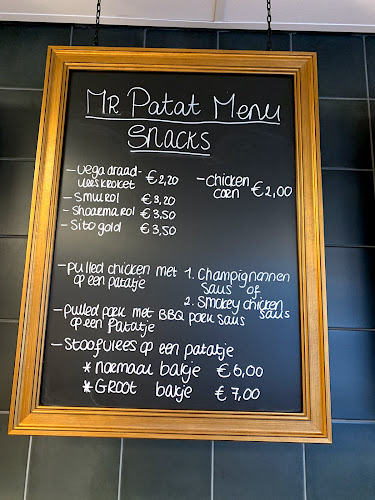 Mr. Patat Menu
Snacks
- vega draad-
vleeskroket € 2,20
- Smulrol € 3,20
- Shoarmarol € 3,50
- Sito gold € 3,50
- Chicken
corn € 2,00
- pulled chicken met
op een patatje
1. Champignonnen
saus of
2. Smokey chicken
saus
- pulled pork met BBQ pork saus
op een Patatje
- Stoofvlees op een patatje
* normaal bakje € 6,00
* Groot bakje € 7,00